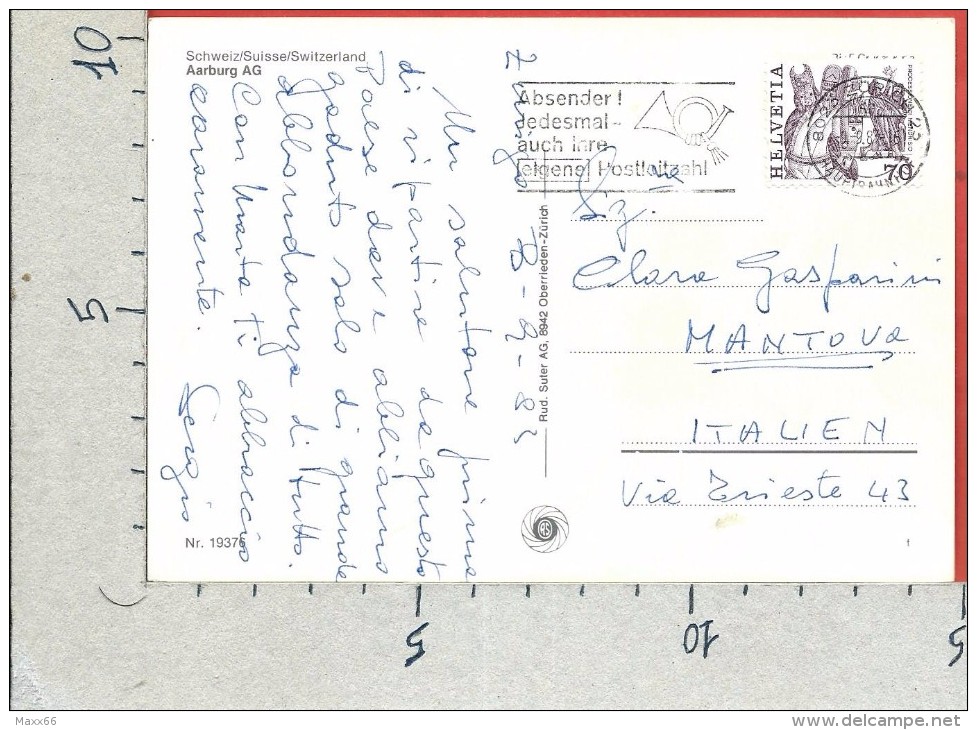 Schweiz/Suisse/Switzerland
Aarburg AG
Zurigo 8-9-83
Un salutare prima
di ripartire da questo
Paese dove abbiamo
goduto solo di grande
abbondanza di tutto.
Con Marta ti abbraccio
caramente.
Sergio
Nr. 19376
Rud. Suter AG, 8942 Oberrieden-Zürich
Absender!
Jedesmal-
auch Ihre
eigene Postleitzahl
HELVETIA
70
Clara Gasparini
MANTOVA
ITALIEN
Via Trieste 43
1
10
5
5
10
5
Maxx66
www.delcampe.net